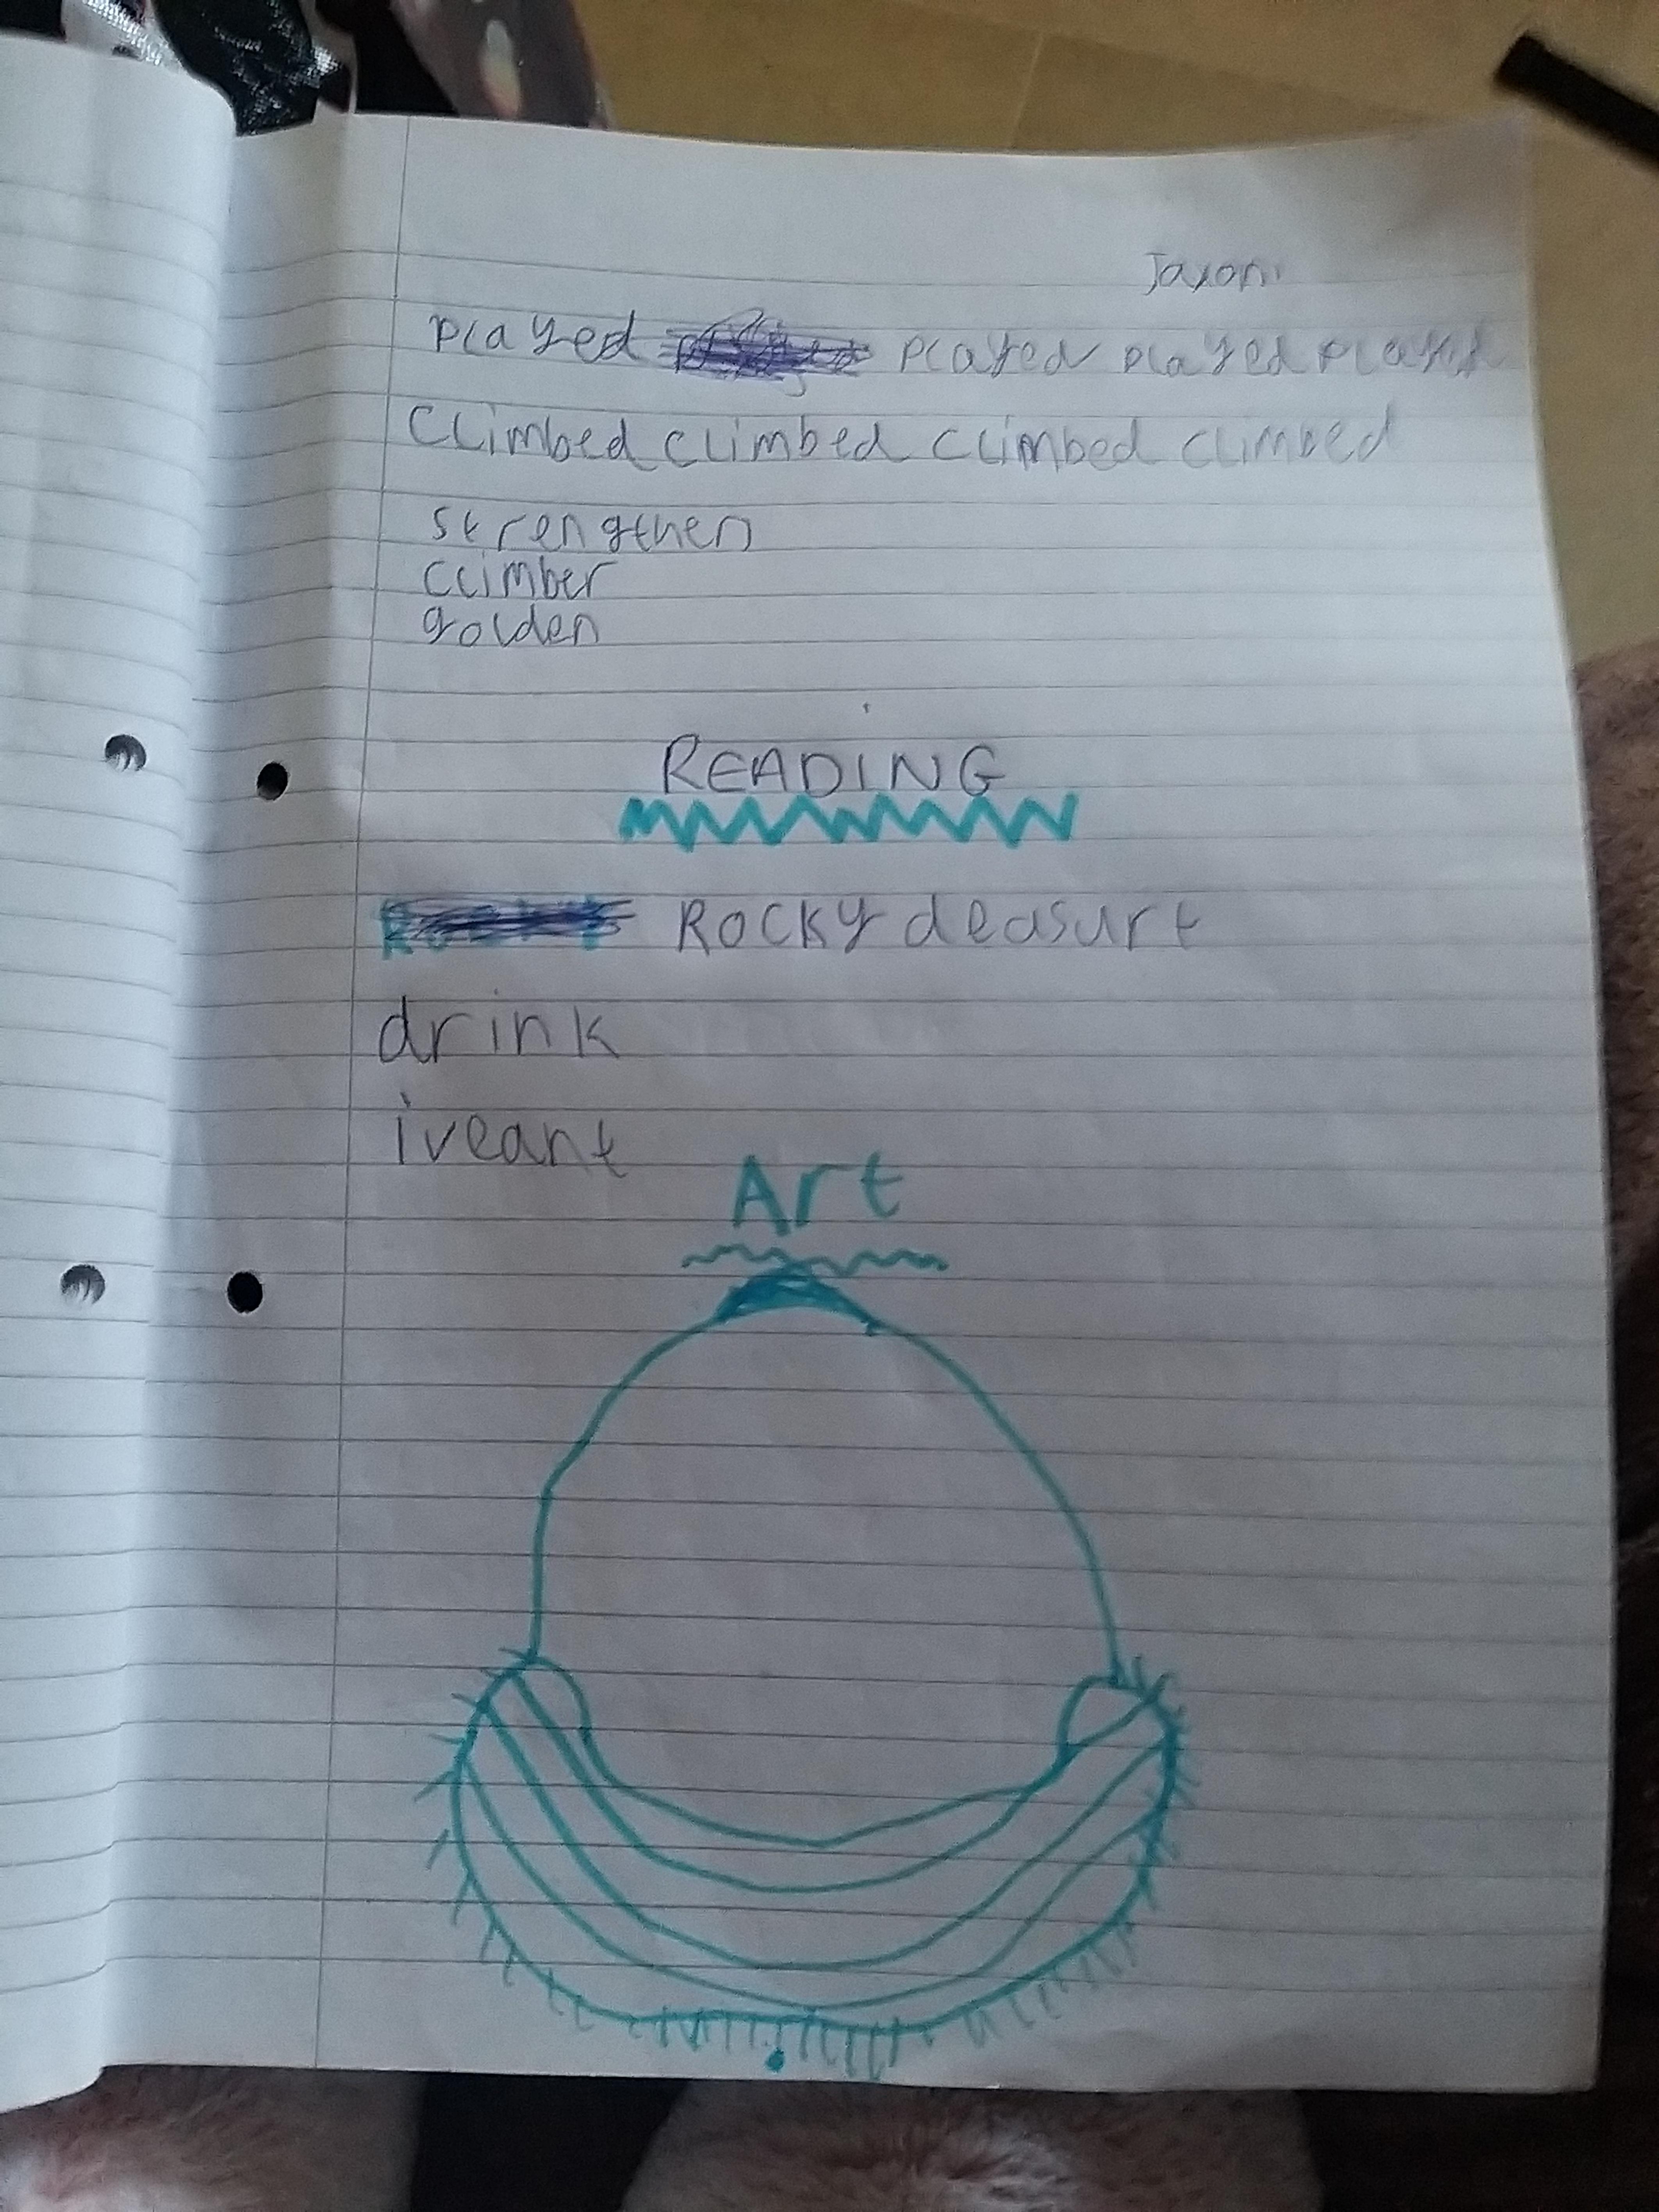 Jaxon
played played played played
Climbed climbed climbed climbed
strengthen
climber
golden
READING
Rocky deasurt
drink
iveant
Art